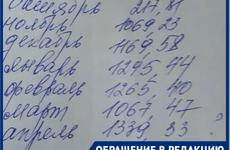 октябрь 217,81
ноябрь 1069,23
декабрь 1169,58
январь 1295,44
февраль 1265,40
март 1067,47
апрель 1379,33 ?
ОБРАЩЕНИЕ В РЕДАКЦИЮ